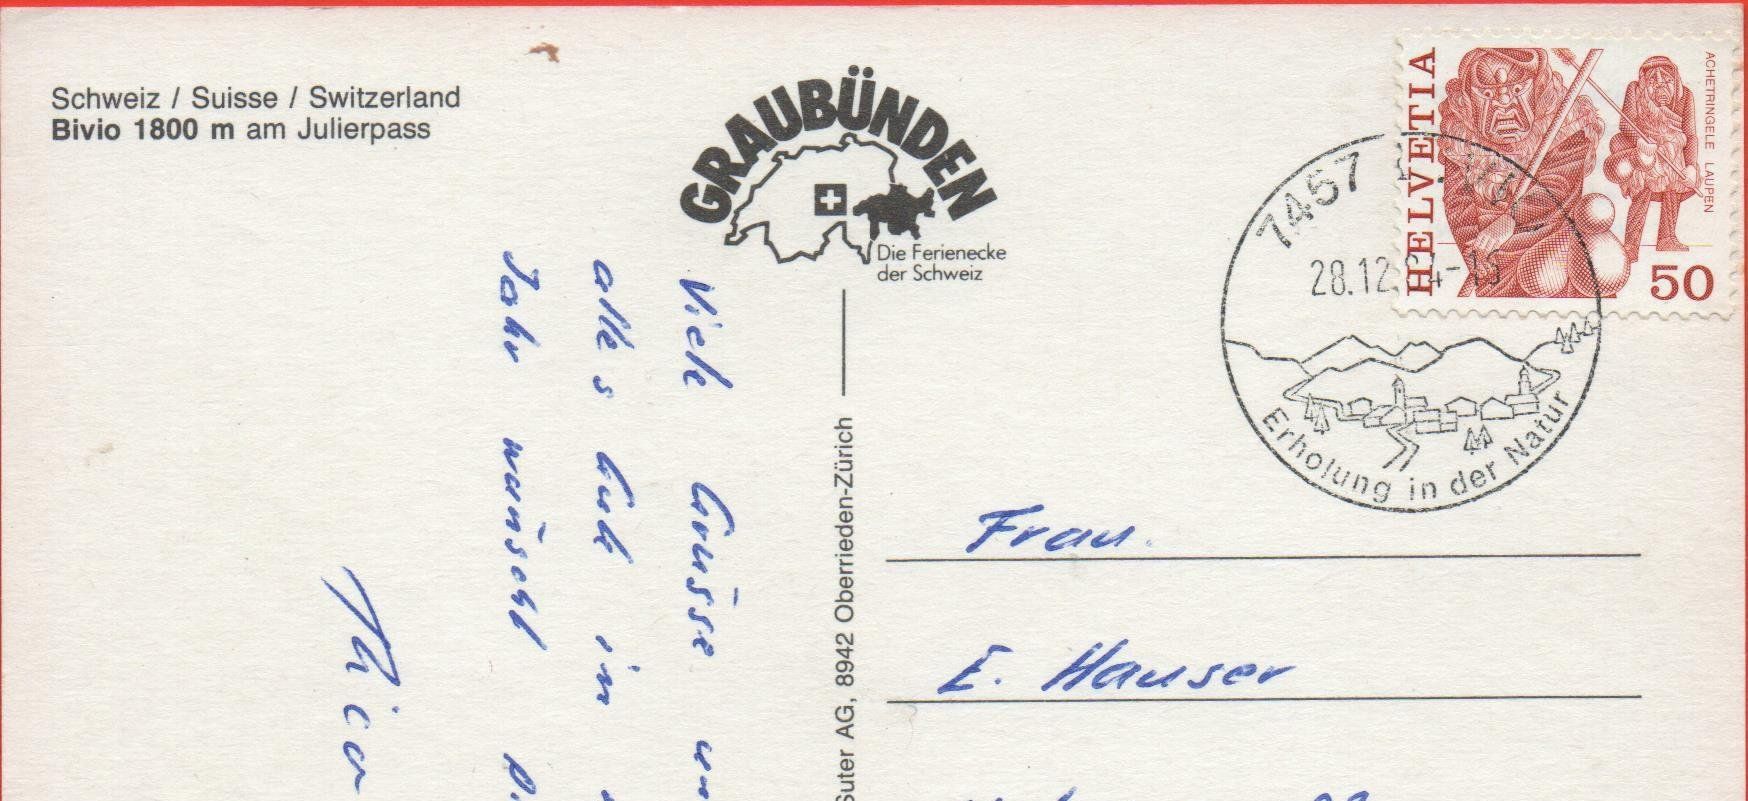 Schweiz / Suisse / Switzerland
Bivio 1800 m am Julierpass
GRAUBÜNDEN
Die Ferienecke
der Schweiz
HELVETIA
ACHETRINGELE LAUPEN
50
7457
28.12.84-16
Erholung in der Natur
Viele Grüsse
alles Gute im
Jahr wünscht
Suter AG, 8942 Oberrieden-Zürich
Frau.
E. Hauser